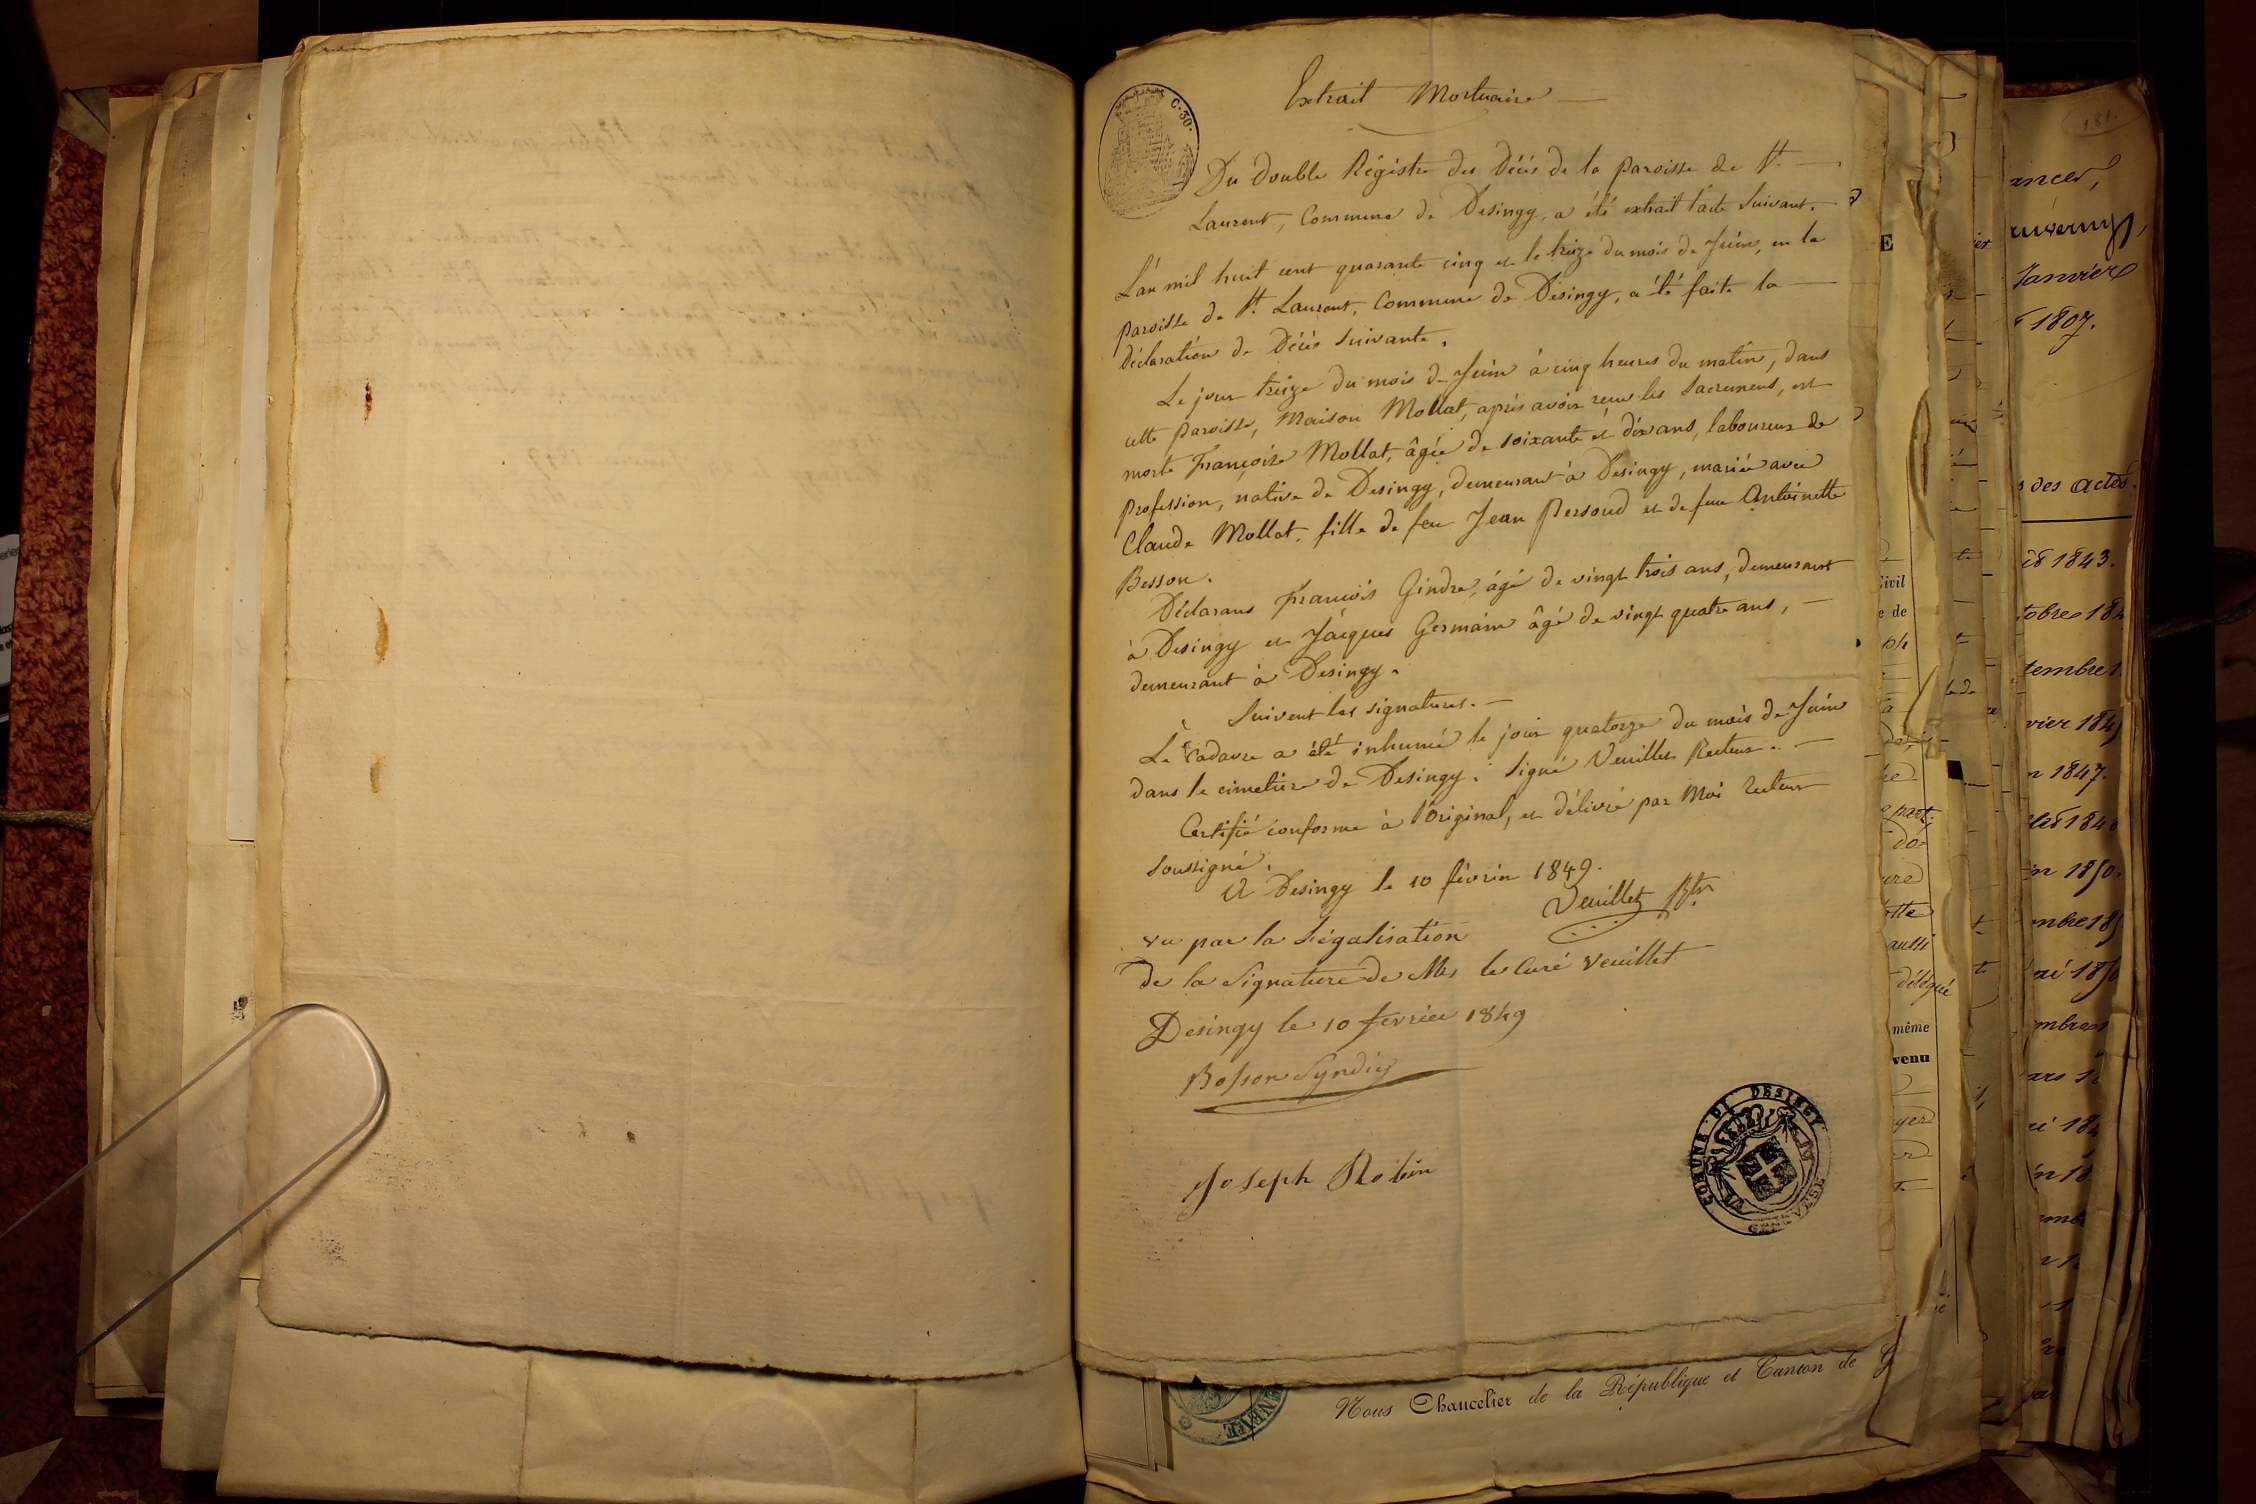 Extrait Mortuaire
C. 30.
Du double Régistre des Décès de la paroisse de St.
Laurent, Commune de Desingy, a été extrait l'acte suivant.
L'an mil huit cent quarante cinq et le treize du mois de Juin, en la
paroisse de St. Laurent, Commune de Desingy, a été faite la
déclaration de Décès suivante.
Le jour treize du mois de Juin à cinq heures du matin, dans
cette paroisse, Maison Mollat, après avoir reçu les Sacremens, est
morte Françoise Mollat, âgée de soixante et dix ans, laboureur de
profession, native de Desingy, demeurant à Desingy, mariée avec
Claude Mollat, fille de feu Jean Persoud et de feue Antoinette
Besson.
Déclarans François Gindre, âgé de vingt trois ans, demeurant
à Desingy et Jacques Germain âgé de vingt quatre ans,
demeurant à Desingy.
Suivent les signatures.
Le Cadavre a été inhumé le jour quatorze du mois de Juin
dans le cimetière de Desingy. Signé Veuillet Recteur.
Certifié conforme à l'Original, et délivré par Moi Recteur
soussigné.
A Desingy le 10 février 1849.
Veuillet
vu par la Légalisation
de la Signature de Mr le Curé Veuillet
Desingy le 10 fevrier 1849
Bosson Syndic
Joseph Robin
COMUNE DI DESINGY
GENEVESE
Nous Chancelier de la République et Canton de G
181.
Janvier
1807.
des actes.
1843.
tobre 184
tembre 1
vier 184
1847.
184
in 1850.
mbre 185
Civil
e de
aussi
délégué
même
venu